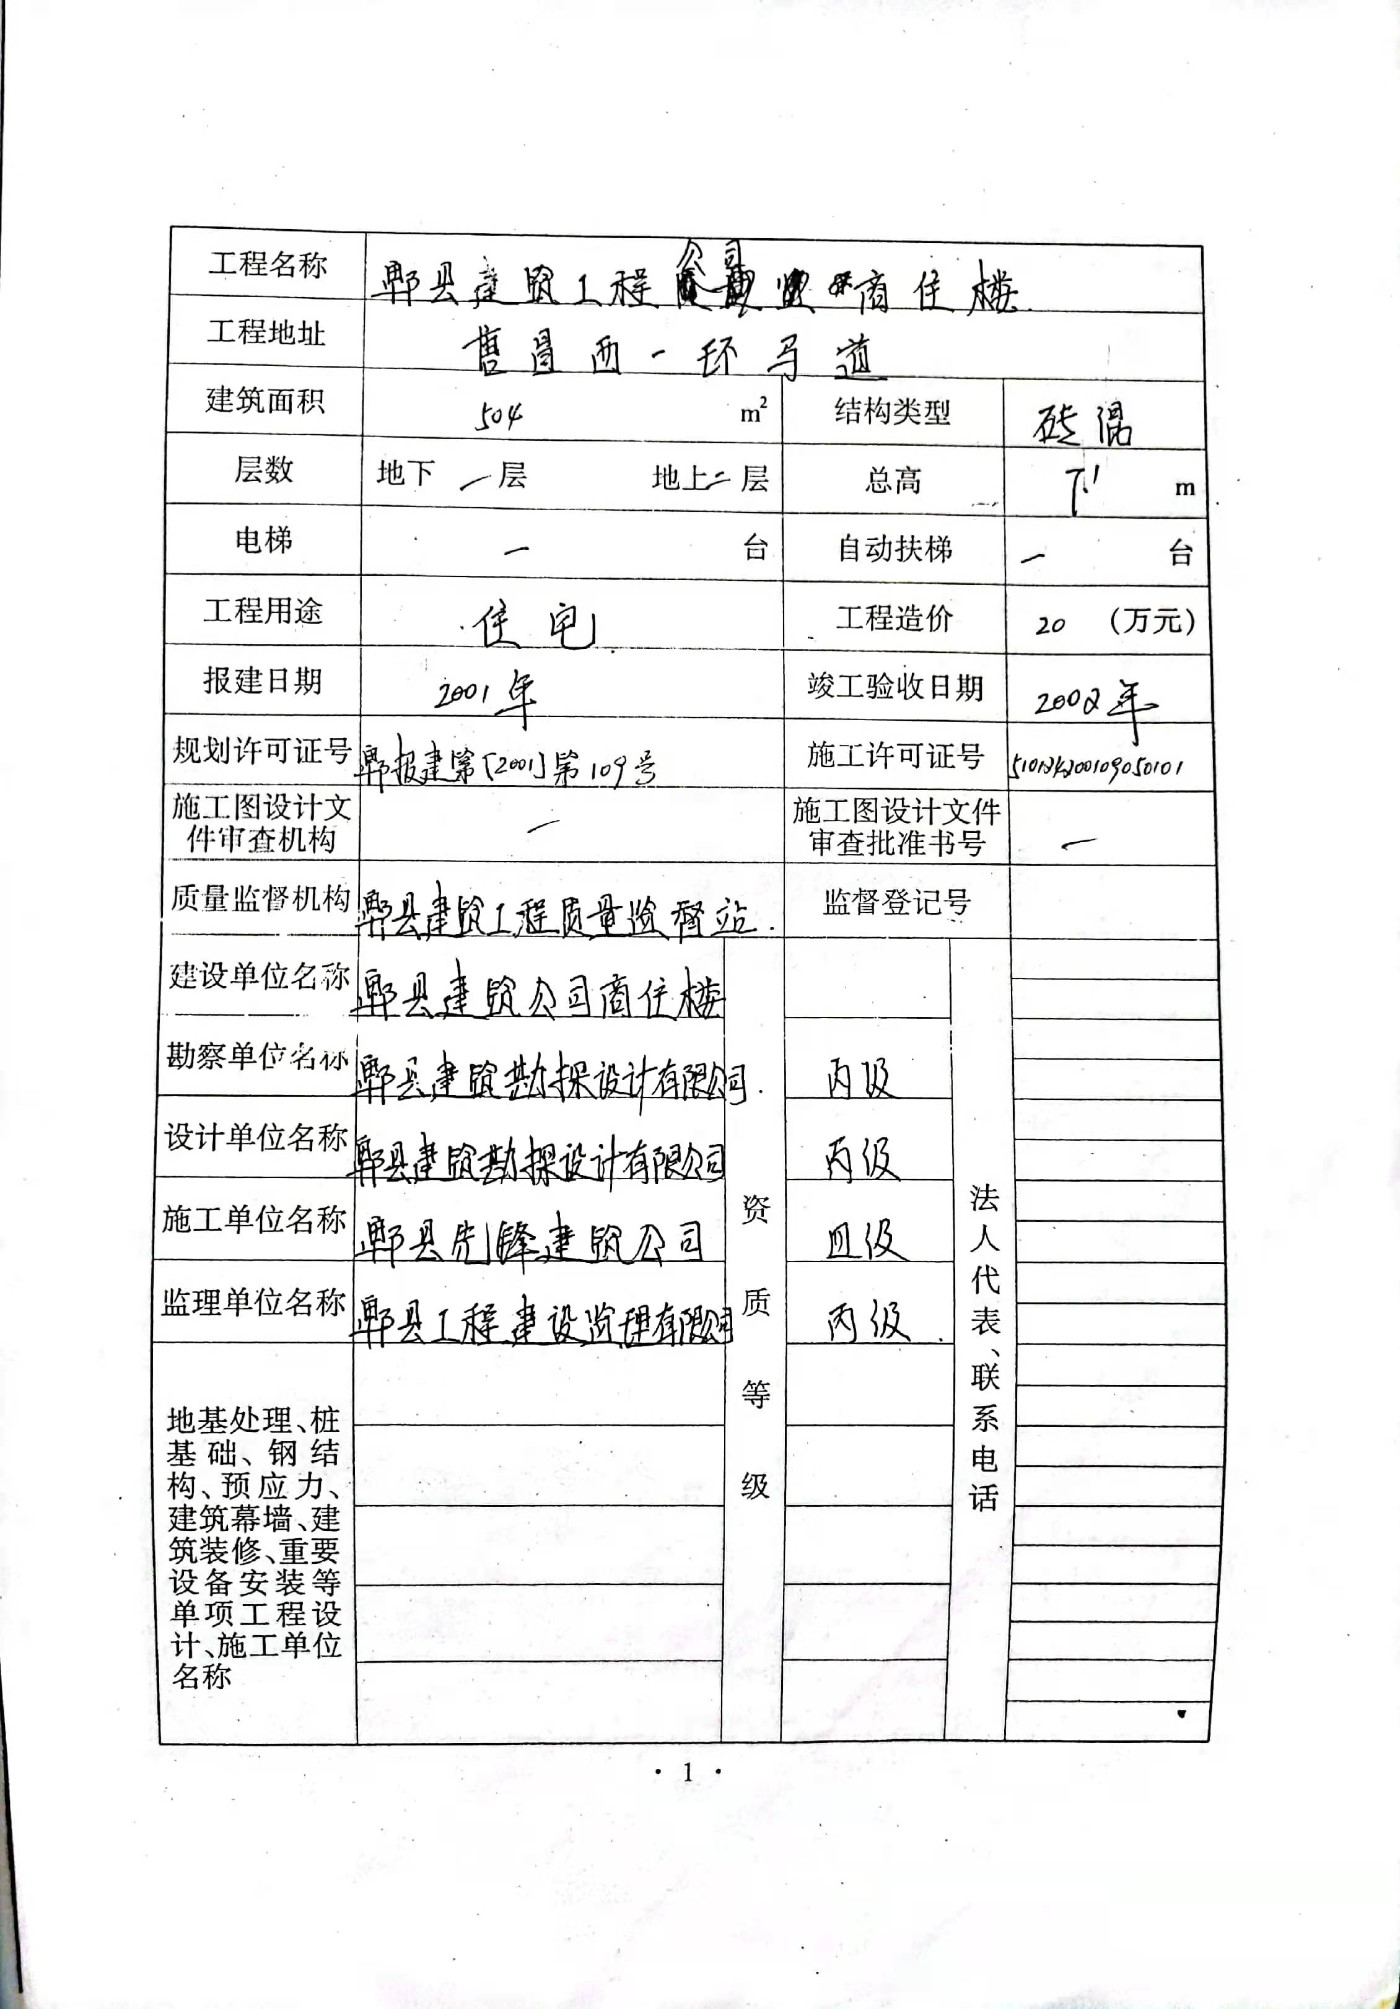 工程名称 郫县建筑工程公司商住楼
工程地址 西一环马道
建筑面积 504 m² 结构类型 砖混
层数 地下 一 层 地上 二 层 总高 m
电梯 一 台 自动扶梯 一 台
工程用途 住宅 工程造价 20 (万元)
报建日期 2001年 竣工验收日期 2002年
规划许可证号 郫报建第[2001]第109号 施工许可证号
施工图设计文件审查机构 一 施工图设计文件审查批准书号 一
质量监督机构 郫县建筑工程质量监督站. 监督登记号
建设单位名称 郫县建筑公司商住楼
勘察单位名称 郫县建筑勘探设计有限公司. 丙级
设计单位名称 郫县建筑勘探设计有限公司 丙级
施工单位名称 郫县先锋建筑公司 叁级
监理单位名称 郫县工程建设监理有限公司 丙级.
资质等级
法人代表、联系电话
地基处理、桩
基础、钢结
构、预应力、
建筑幕墙、建
筑装修、重要
设备安装等
单项工程设
计、施工单位
名称
· 1 ·